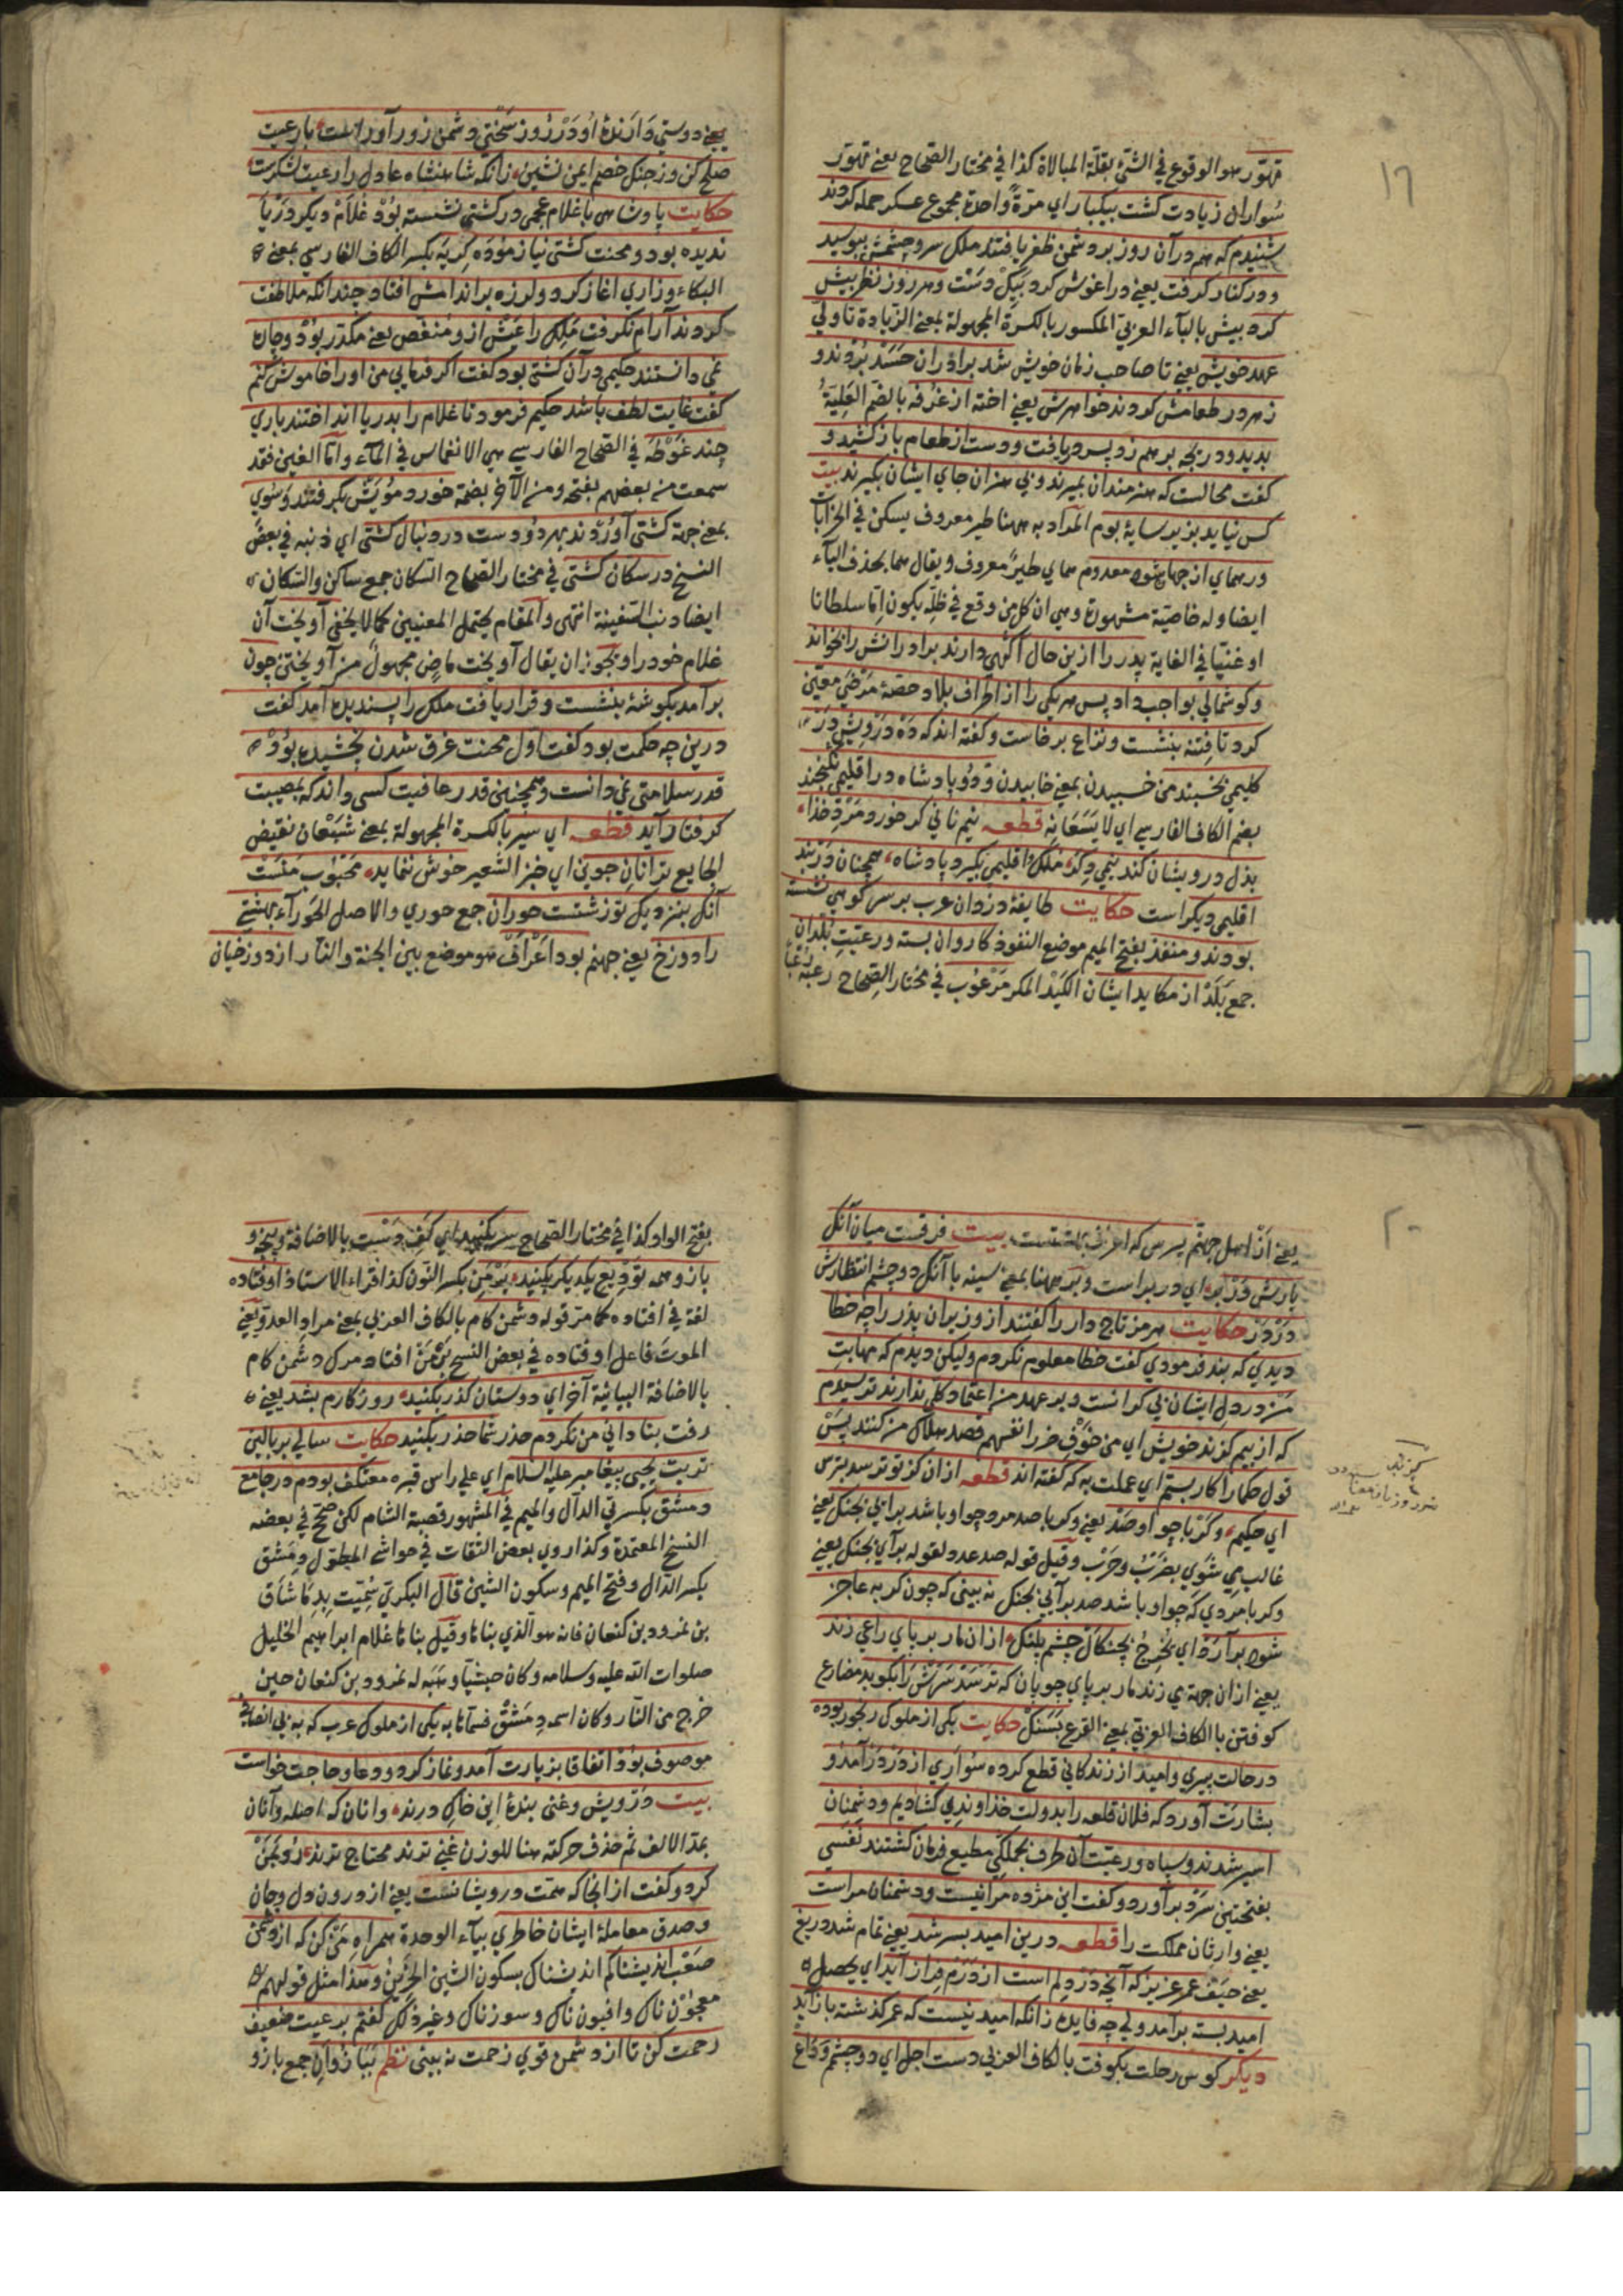 ١٦
تهوّر هو الوقوع في الشئ بقلّة المبالاة كذا في مختار الصحاح يعنے تهوّر
سُواران زيادت كشت بيكبار اي مرّةً واحدة مجموع عسكر حمله كردند
شنيدم كه هم در آن روز بر دشمن ظفر يافتند ملك سر و چشمش ببوسيد
و در كنار كرفت يعنے در اغوش كرد بيكْ دَسْت و هر روز نظر بيش
كرد بيش بالباء العربيّ المكسور بالكسرة المجهولة بمعنے الزيادة تا ولي
عهد خويش يعنے تا صاحب زمان خويش شد براذران حَسَدْ بُرْدند و
زهر در طعامش كردند خواهرش يعنے اخته از غُرفه بالضم العَلِيّةُ
بديد و دريچه بر هم زد پسر دريافت و دست از طعام باز كشيد و
كفت محالست كه هنرمندان بميرند و بي هنران جاي ايشان بكيرند بيت
كس نيايد بزير سايهٔ بوم المراد به ههنا طير معروف يسكن في الخرابات
ور هماي از جهان شود معدوم هماي طيرٌ معروف و يقال هما بحذف الياء
ايضا و له خاصيّة مشهورة و هي ان كل من وقع في ظلّه يكون امّا سلطانا
او غنيّا في الغاية پدر را ازين حال آكهي دارند برادرانش را بخواند
و كوشمالي بواجب داد پس هر يكي را از اطراف بلاد حصّهٔ مَرْضي معيّن
كرد تا فِتنه بنشست و نزاع برخاست و كفته اند كه دَهْ دَرْوِيش دَرْ
كليمي بخسبند من خسبيدن بمعنے خابيدن وَ دُو پادشاه در اقليمي نكنجند
بضم الكاف الفارسي اي لا يَسَعَانِهِ قطعه نيم ناني كر خورد مَرْدِ خذاء
بذل درويشان كند نيمي دِكَرْ مُلك اقليمي بكيرد پادشاه همچنان دَرْ بَند
اقليمي ديكر است حكايت طايفهٔ دزدان عرب بر سر كوهي نشسته
بودند و منفذ بفتح الميم موضع النفوذ كاروان بسته و رعيّتِ بُلدان
جمع بَلَدْ از مكايد ايشان الكَيْد المكر مَرْعُوب في مختار الصِّحاح رَعَبَه رُعْبًا
يعنے دوستي دَارندهٔ اُو دَرْ رُوز سَخْتِي دشمن زور آوراست با رعيت
صلح كن وز جنك خصم ايمن نشين زانكه شاهنشاه عادل را رعيت لشكرست
حكايت پادشاهي با غلام عجمي در كشتي نشسته بُوْد غلاَمْ ديكر دَرْيا
نديده بود و محنت كشتي نيازموده كِريَه بكسر الكاف الفارسي بمعنے
البكاء و زاري اغاز كرد و لرزه بر اندامش افتاد چندانكه ملاطفت
كردند آرام نكرفت مَلِك را عَيْش از و مُنغّص يعنے مكدّر بُوْد و چاره
نمي دانستند حكيمي در آن كشتي بود كفت اكر فرمايي من او را خاموش كنم
كفت غايت لطف باشد حكيم فرمود تا غلام را بدريا انداختند باري
چند غَوْطَه في الصّحاح الفارسي هي الانغماس في الماء و امّا الغين فقد
سمعت من بعضهم بفتحه و من الآخر بضمّه خورد مُويَشْ بكرفتند و سوي
بمعنے جهة كشتي آوُرْدند بهر دُو دست در دنبال كشتي اي ذنبه في بعض
النسخ در سكان كشتي في مختار الصّحاح السكان جمع ساكن و السكان
ايضا ذنب السّفينة انتهى و المقام يحتمل المعنيين كما لا يخفى آويخت آن
غلام خود را و يجوز ان يقال آويخت ماضٍ مجهول من آويختن چون
بر آمد بكوشهٔ بنشست و قرار يافت ملك را پسنديده آمد كفت
درين چه حكمت بود كفت اول محنت غرق شدن نچشيده بُوْد
قدر سلامتي نمي دانست و همچنين قدر عافيت كسي داند كه بمصيبت
كرفتار آيد قطعه اي سير بالكسرة المجهولة بمعنے شَبْعَان نقيض
الجايع ترا نانِ جوين اي خبز الشعير خوش ننمايد مَحْبُوب مَنَسْت
آنك بنزديك تو زشتست حوران جمع حوري و الاصل الحَوراء بهشتي
را دوزخ يعنے جهنم بود اَعْرَافْ هو موضع بين الجنة و النار از دوزخيان
٢٠
يعنے ازْ اهل جهنّم پرس كه اعراف بهشتست بيت فرقست ميان آنك
يارش دَرْ بر اي در بر است و بَرْ ههنا بمعنے سينه با آنك دو چشم انتظارش
دَرْ دَرْ حكايت هرمز تاج دار را كفتند از وزيران پذر را چه خطا
ديدي كه بند فرمودي كفت خطا معلوم نكردم وليكن ديدم كه مهابتِ
من در دل ايشان بي كرانست و بر عهد من اعتماد كلي ندارند ترسيدم
كه از بيم كزند خويش اي من خَوْفِ ضرر انفسهم قصد هلاك من كنند پَسْ
قول حكما را كار بستم اي عملت به كه كفته اند قطعه از ان كز تو ترسد بترس
اي حكيم و كَرْ با چو او صَدْ يعنے و كر با صد مرد چو او باشد بر آيي بجنك يعنے
غالب مي شوي بضَرْبُ و حَرْب و قيل قوله صد عدد لقوله بر آيي بجنك يعنے
و كر با مردي كه چو او باشد صد بر آيي بجنك نه بيني كه چون كربه عاجز
شود بر آرَدْ اي يُخْرِجُ بچنكالْ چشم پلنك از ان مار بر پاي راعي زند
يعنے از ان جهة مي زند مار بر پاي چوپان كه تَرْسَدْ سَرَشْ رَا بكوبد مضارع
كوفتن با الكاف العربيّ بمعنے القرع بسَنكْ حكايت يكي از ملوك رنجور بوده
در حالت پيري و اميد از زندكاني قطع كرده سُوَاري از دَرْ دَرْ آمذ و
بشارت آورد كه فلان قلعه را بدولت خذاوندي كشاديم و دشمنان
اسير شدند و سپاه و رعيّت آن طرف بجملكي مطيع فرمان كشتند نفسي
بفتحتين سَرْد بر آورد و كفت اين مژده مرا نيست و دشمنان مراست
يعنے وارثان مملكت را قطعه درين اميد بسر شد يعنے تمام شد دريغ
يعنے حَيْف عمر عزيز كه آنچه دَرْ دِلم است از دَرَم فراز آيد اي يحصل
اميد بسته بر آمد ولي چه فايده زانكه اميد نيست كه عمر كذشته باز آيد
ديكر كوس رحلت بكوفت با الكاف العربي دست اجل اي دو چشم وَدَاع
بفتح الواو كذا في مختار الصّحاح سر بكنيد اي كَفِ دَسْت بالاضافة و پنجه و
بازو همه تَوْدِيع يكديكر بكينيد بَرْ مَنِ بكسر النّون كذا قراء الاستاذ اوفتاده
لغة في افتاده كما مرّ قوله دشمن كام بالكاف العربي بمعنے مراد العدوّ يعنے
الموت فاعل اوفتاده في بعض النسخ بَرْ مَنْ افتاد مرك دشمن كام
بالاضافة البيانيّة آخر اي دوستان كذر بكنيد روزكارم بشد يعنے
رفت بناداني من نكردم حذر شما حذر بكنيد حكايت سالي بر بالين
تربت يحيى پيغامبر عليه السلام اي على راس قبره معتكف بودم در جامع
دمشق بكسرتي الدّال و الميم في المشهور قصبة الشام لكن صحّ في بعضه
النسخ المعتمدة و كذا روي بعض الثقات في حواشي المطوّل دِمَشْق
بكسر الدّال و فتح الميم و سكون الشين قال البكري سُمّيت بدِمَاشَاق
بن نمرود بن كنعان فانه هو الّذي بناها و قيل بناها غلام ابراهيم الخليل
صلوات اللّه عليه و سلامه و كان حبشيّا وَهَبَه له نمرود بن كنعان حين
خرج من النّار و كان اسمه دِمَشْق فسمّاها به يكي از ملوك عرب كه به بي انصافي
موصوف بُوْد اتفاقا بزيارت آمد و نماز كرد و دعا و حاجت خواست
بيت دَرْويش و غني بندهٔ اين خاك درند و انان كه اصله و آنان
بمدّ الالف ثم حذف حركته هنا للوزن غني ترند محتاج ترند رُو بمَنْ
كرد و كفت از انجا كه همت درويشانست يعنے از درون دل و جان
و صدق معاملهٔ ايشان خاطري بياء الوحدة همراهِ مَنْ كن كه از دشمن
صَعْب انديشناكم انديشناك بسكون الشين الحَزِينْ و هذا مثل قولهم
معجُوْن ناك و افيون ناك و سوزناك و غير ذلك كفتم بر رعيت ضعيف
رحمت كن تا از دشمن قوي زحمت نه بيني نظم بَبَازُوَانِ جمع بازو